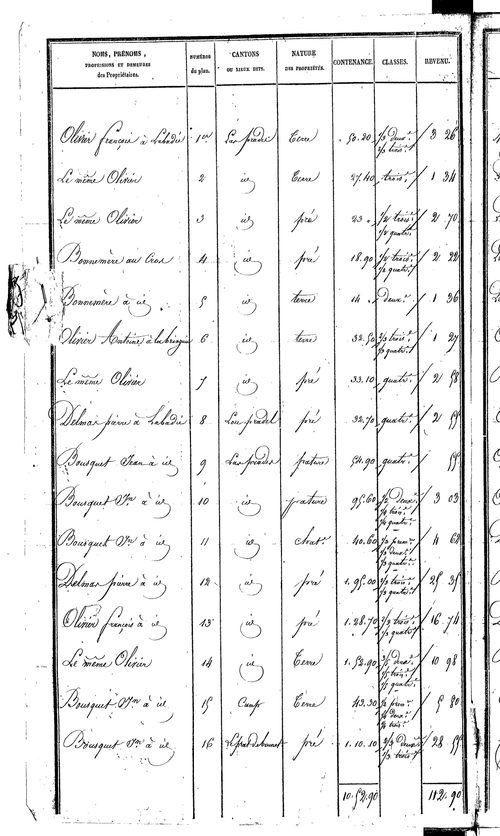 NOMS, PRÉNOMS, PROFESSIONS ET DEMEURES des Propriétaires. NUMÉROS du plan. CANTONS OU LIEUX DITS. NATURE DES PROPRIÉTÉS. CONTENANCE. CLASSES. REVENU.
Olivier françois à Labadié 1er Las prades Terre 50.20 1/3 deux. 2/3 trois. 3 26
Le même Olivier 2 id Terre 27.40 trois. 1 34
Le même Olivier 3 id pré 23 " 1/2 trois. 1/2 quatr. 2 70
Bonnemère au Cros 4 id pré 18.90 1/2 trois. 1/2 quatr. 2 22
Bonnemère à id 5 id terre 14 " deux. 1 36
Olivier Antoine 6 id terre 32.50 trois. quatr. 1 27
Le même Olivier 7 id pré 33.10 quatr. 2 58
Delmas pierre à Labadié 8 Lou pradel pré 32.70 quatr. 2 55
Bousquet Jean à id 9 Las prades pature 54.90 quatr. 55
Bousquet Jn à id 10 id pature 95.60 deux. trois. quatr. 3 03
Bousquet Jn à id 11 id chat. 40.60 prem. deux. quatr. 4 68
Delmas pierre à id 12 id pré 1.95.00 trois. quatr. 25 35
Olivier françois à id 13 id pré 1.28.70 trois. quatr. 16 74
Le même Olivier 14 id Terre 1.52.90 deux. trois. quatr. 10 98
Bousquet Jn à id 15 Camp Terre 43.30 prem. deux. trois. 5 80
Bousquet Jn à id 16 pré 1.10.10 2/3 deux. 1/3 trois. 28 55
10.52.90 112.90